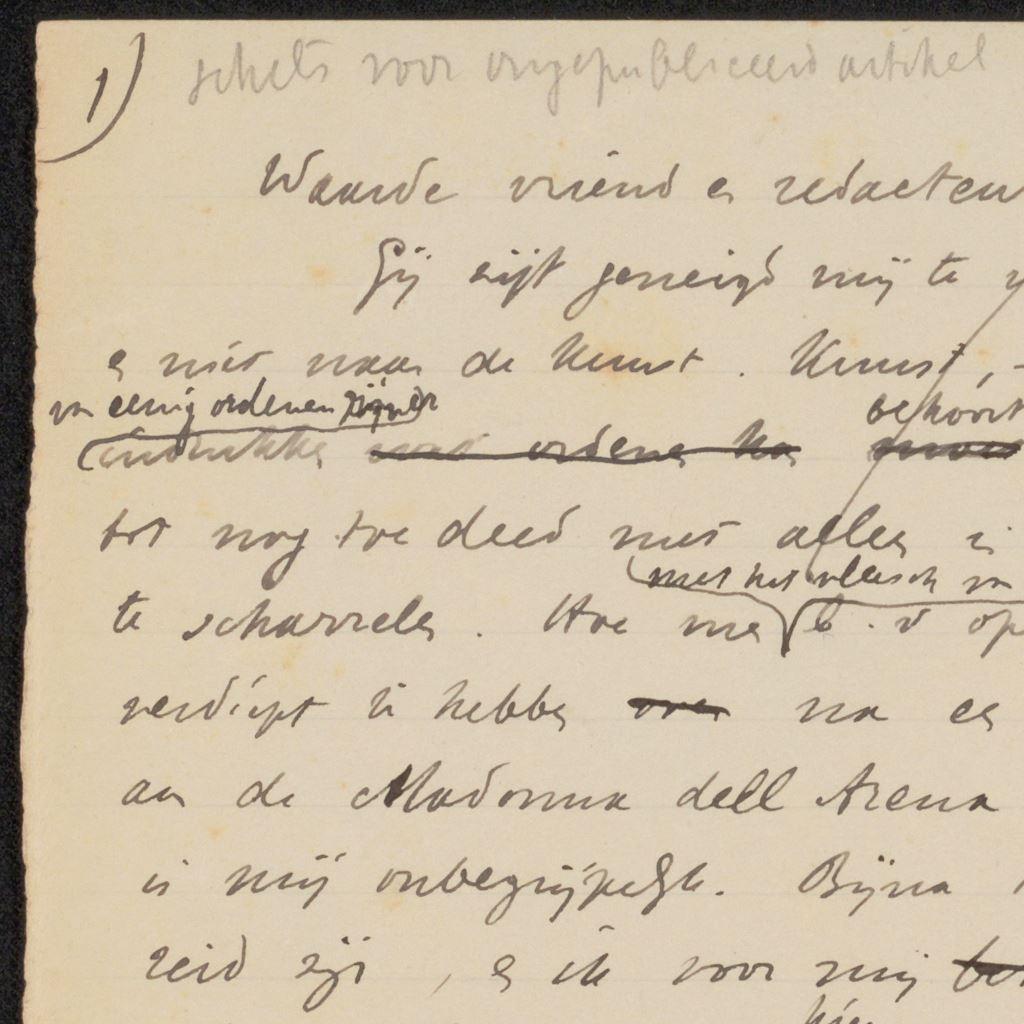 1)
schets voor ongepubliceerd artikel
Waarde vriend en redacteur
Gij zijt geneigd mij te
en niet naar de kunst. Kunst, -
van eenig ordenen
behoort
indrukken ordenen kan moet
tot nog toe deed niet alles in
met het vleesch van
te scharrelen. Hoe men b.v op
verdiept te hebben over na een
aan de Madonna dell Arena
is mij onbegrijpelijk. Bijna
zeid zijn, en ik voor mij
hier